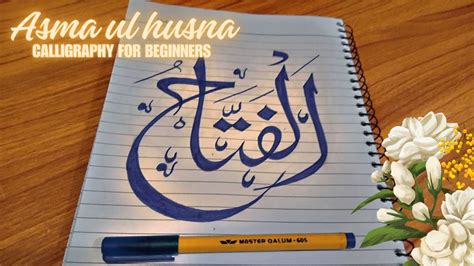 Asma ul husna
CALLIGRAPHY FOR BEGINNERS
الفتاح
MASTER QALUM-605